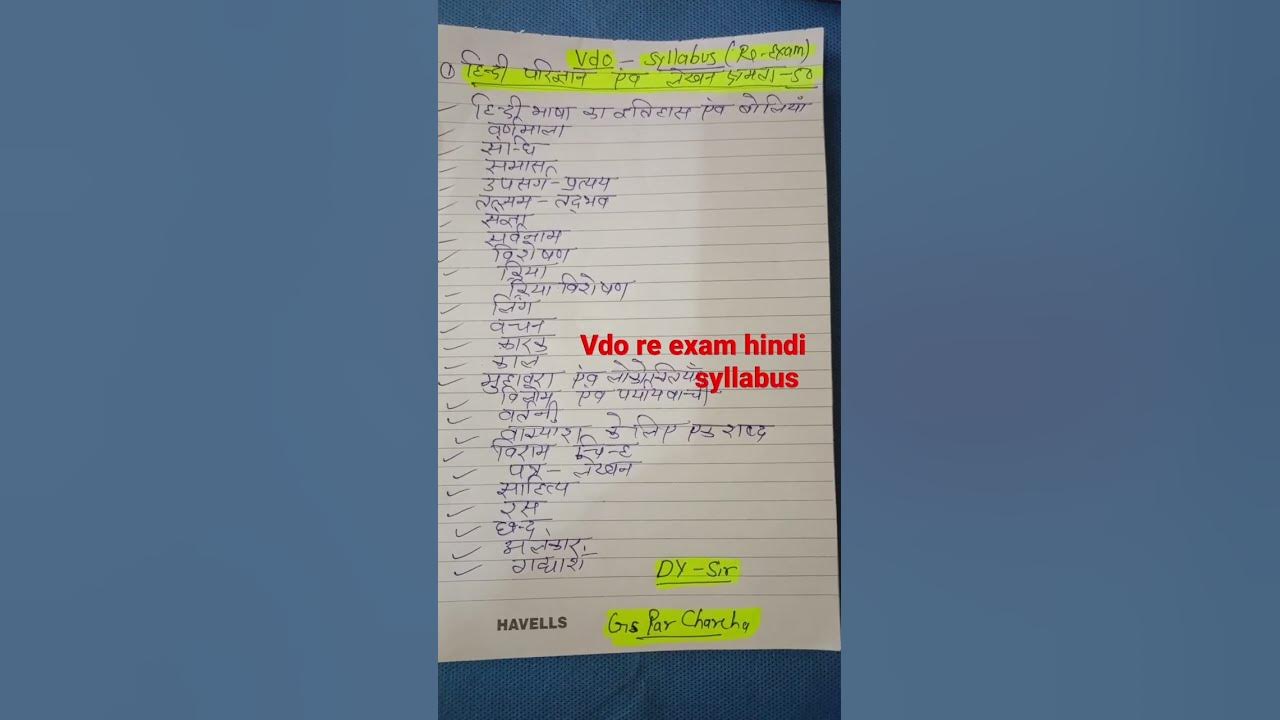 Vdo – syllabus (Re-Exam)
① हिन्दी परिज्ञान एंव लेखन क्षमता - 50
हिन्दी भाषा का इतिहास एंव बोलियाँ
वर्णमाला
सन्धि
समास
उपसर्ग - प्रत्यय
तत्सम - तद्भव
संज्ञा
सर्वनाम
विशेषण
क्रिया
क्रिया विशेषण
लिंग
वचन
कारक
काल
मुहावरा एंव लोकोक्तियाँ
विलोम एंव पर्यायवाची
वर्तनी
वाक्यांश के लिए एक शब्द
विराम चिन्ह
पत्र - लेखन
साहित्य
रस
छन्द
अलंकार
गद्यांश
Vdo re exam hindi
syllabus
DY - Sir
HAVELLS
Gs Par Charcha